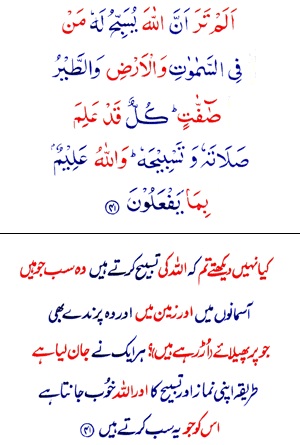 اَلَمْ تَرَ اَنَّ اللهَ يُسَبِّحُ لَهٗ مَنْ
فِى السَّمٰوٰتِ وَالْاَرْضِ وَالطَّيْرُ
صٰٓفّٰتٍ ؕ كُلٌّ قَدْ عَلِمَ
صَلَاتَهٗ وَ تَسْبِيْحَهٗ ؕ وَاللهُ عَلِيْمٌۢ
بِمَا يَفْعَلُوْنَ ﴿۴۱﴾
کیا نہیں دیکھتے تم کہ اللہ کی تسبیح کرتے ہیں وہ سب جو ہیں
آسمانوں میں اور زمین میں اور وہ پرندے بھی
جو پر پھیلائے (اُڑ رہے ہیں)؟ ہر ایک نے جان لیا ہے
طریقہ اپنی نماز اور تسبیح کا اور اللہ خُوب جانتا ہے
اس کو جو یہ سب کرتے ہیں ﴿۴۱﴾